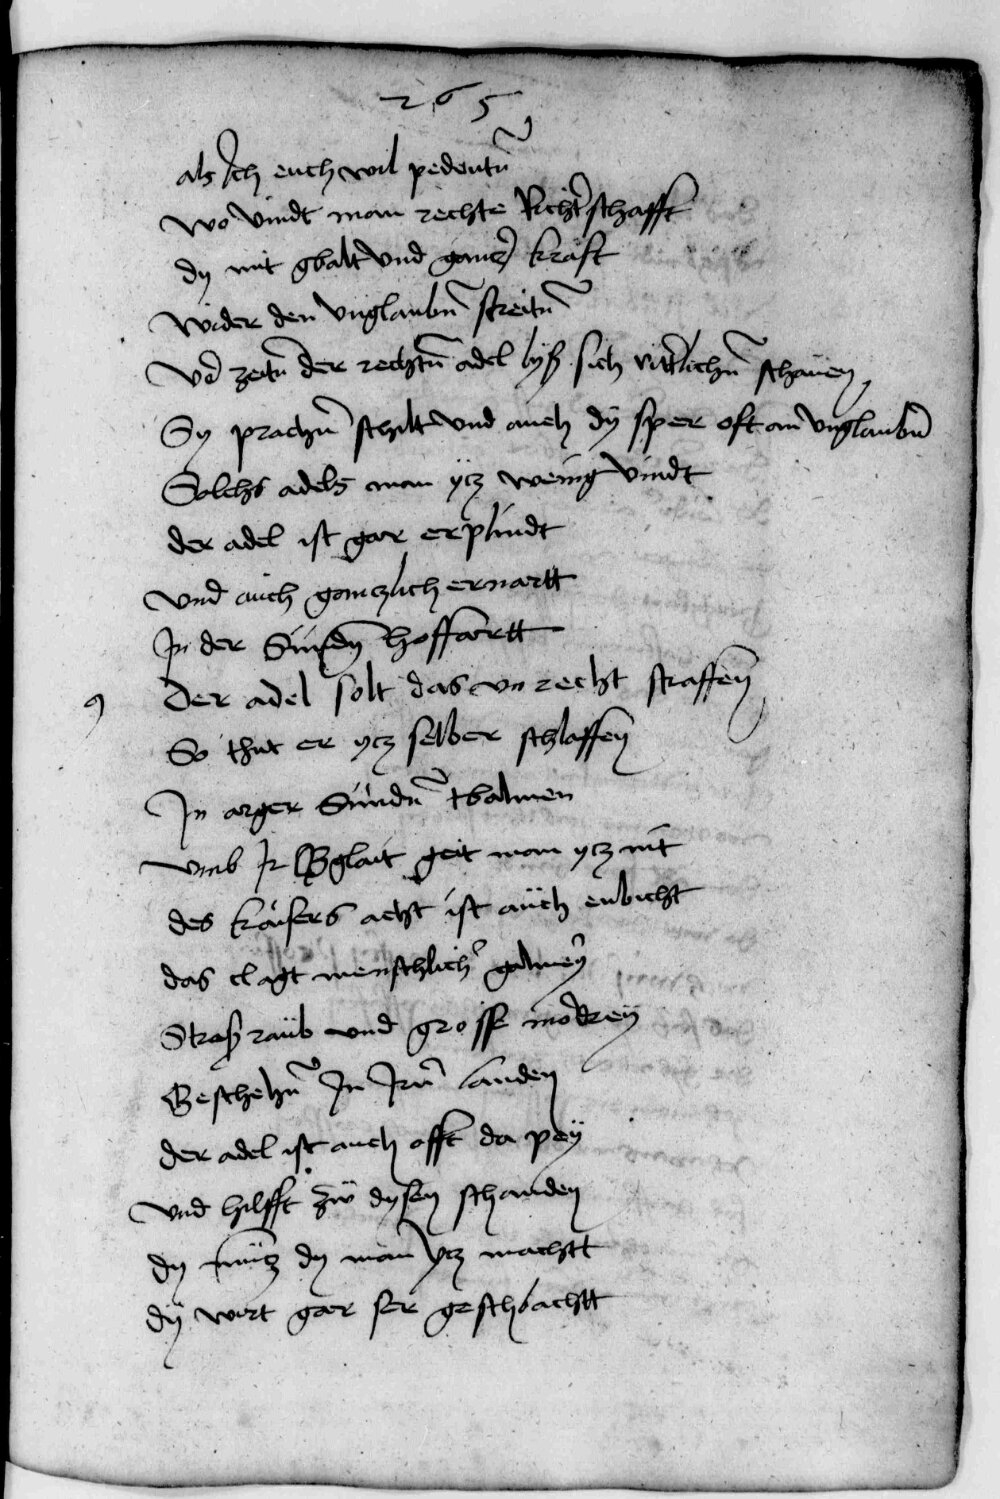 265
als Ich euch wil pedeutn̄
wo vindt man rechte Richt̄schafft
dy mit gbalt vnd gancz̄ krafft
Wider den vnglaubn̄ streitn̄
Vō zeitn̄ der rechtn̄ adel lyß sich ritt̄lichn̄ schauen
Sy prachn̄ schilt vnd auch dÿ sper oft am vnglaubn̄
Solchs adels man ÿcz wenig vindt
der adel ist gar erplindt
vnd auch ganczlich ernartt
In der Sundn̄ hoffartt
9 Der adel solt das vnrecht straffen
So thut er ycz selber schlaffen
In arger Sundn̄ tbalmen
vmb Ir glait geit man ycz nit
des kaisers acht ist aüch enbicht
das clagt menschlich̄ galmeÿ
Straß raüb vnd grosse mordreÿ
Geschehn̄ In Irn̄ landen
der adel ist auch offt da peÿ
vnd hilfft zw dysen schanden
dy müncz dy man ycz machtt
dÿ wirt gar ser geschbachtt